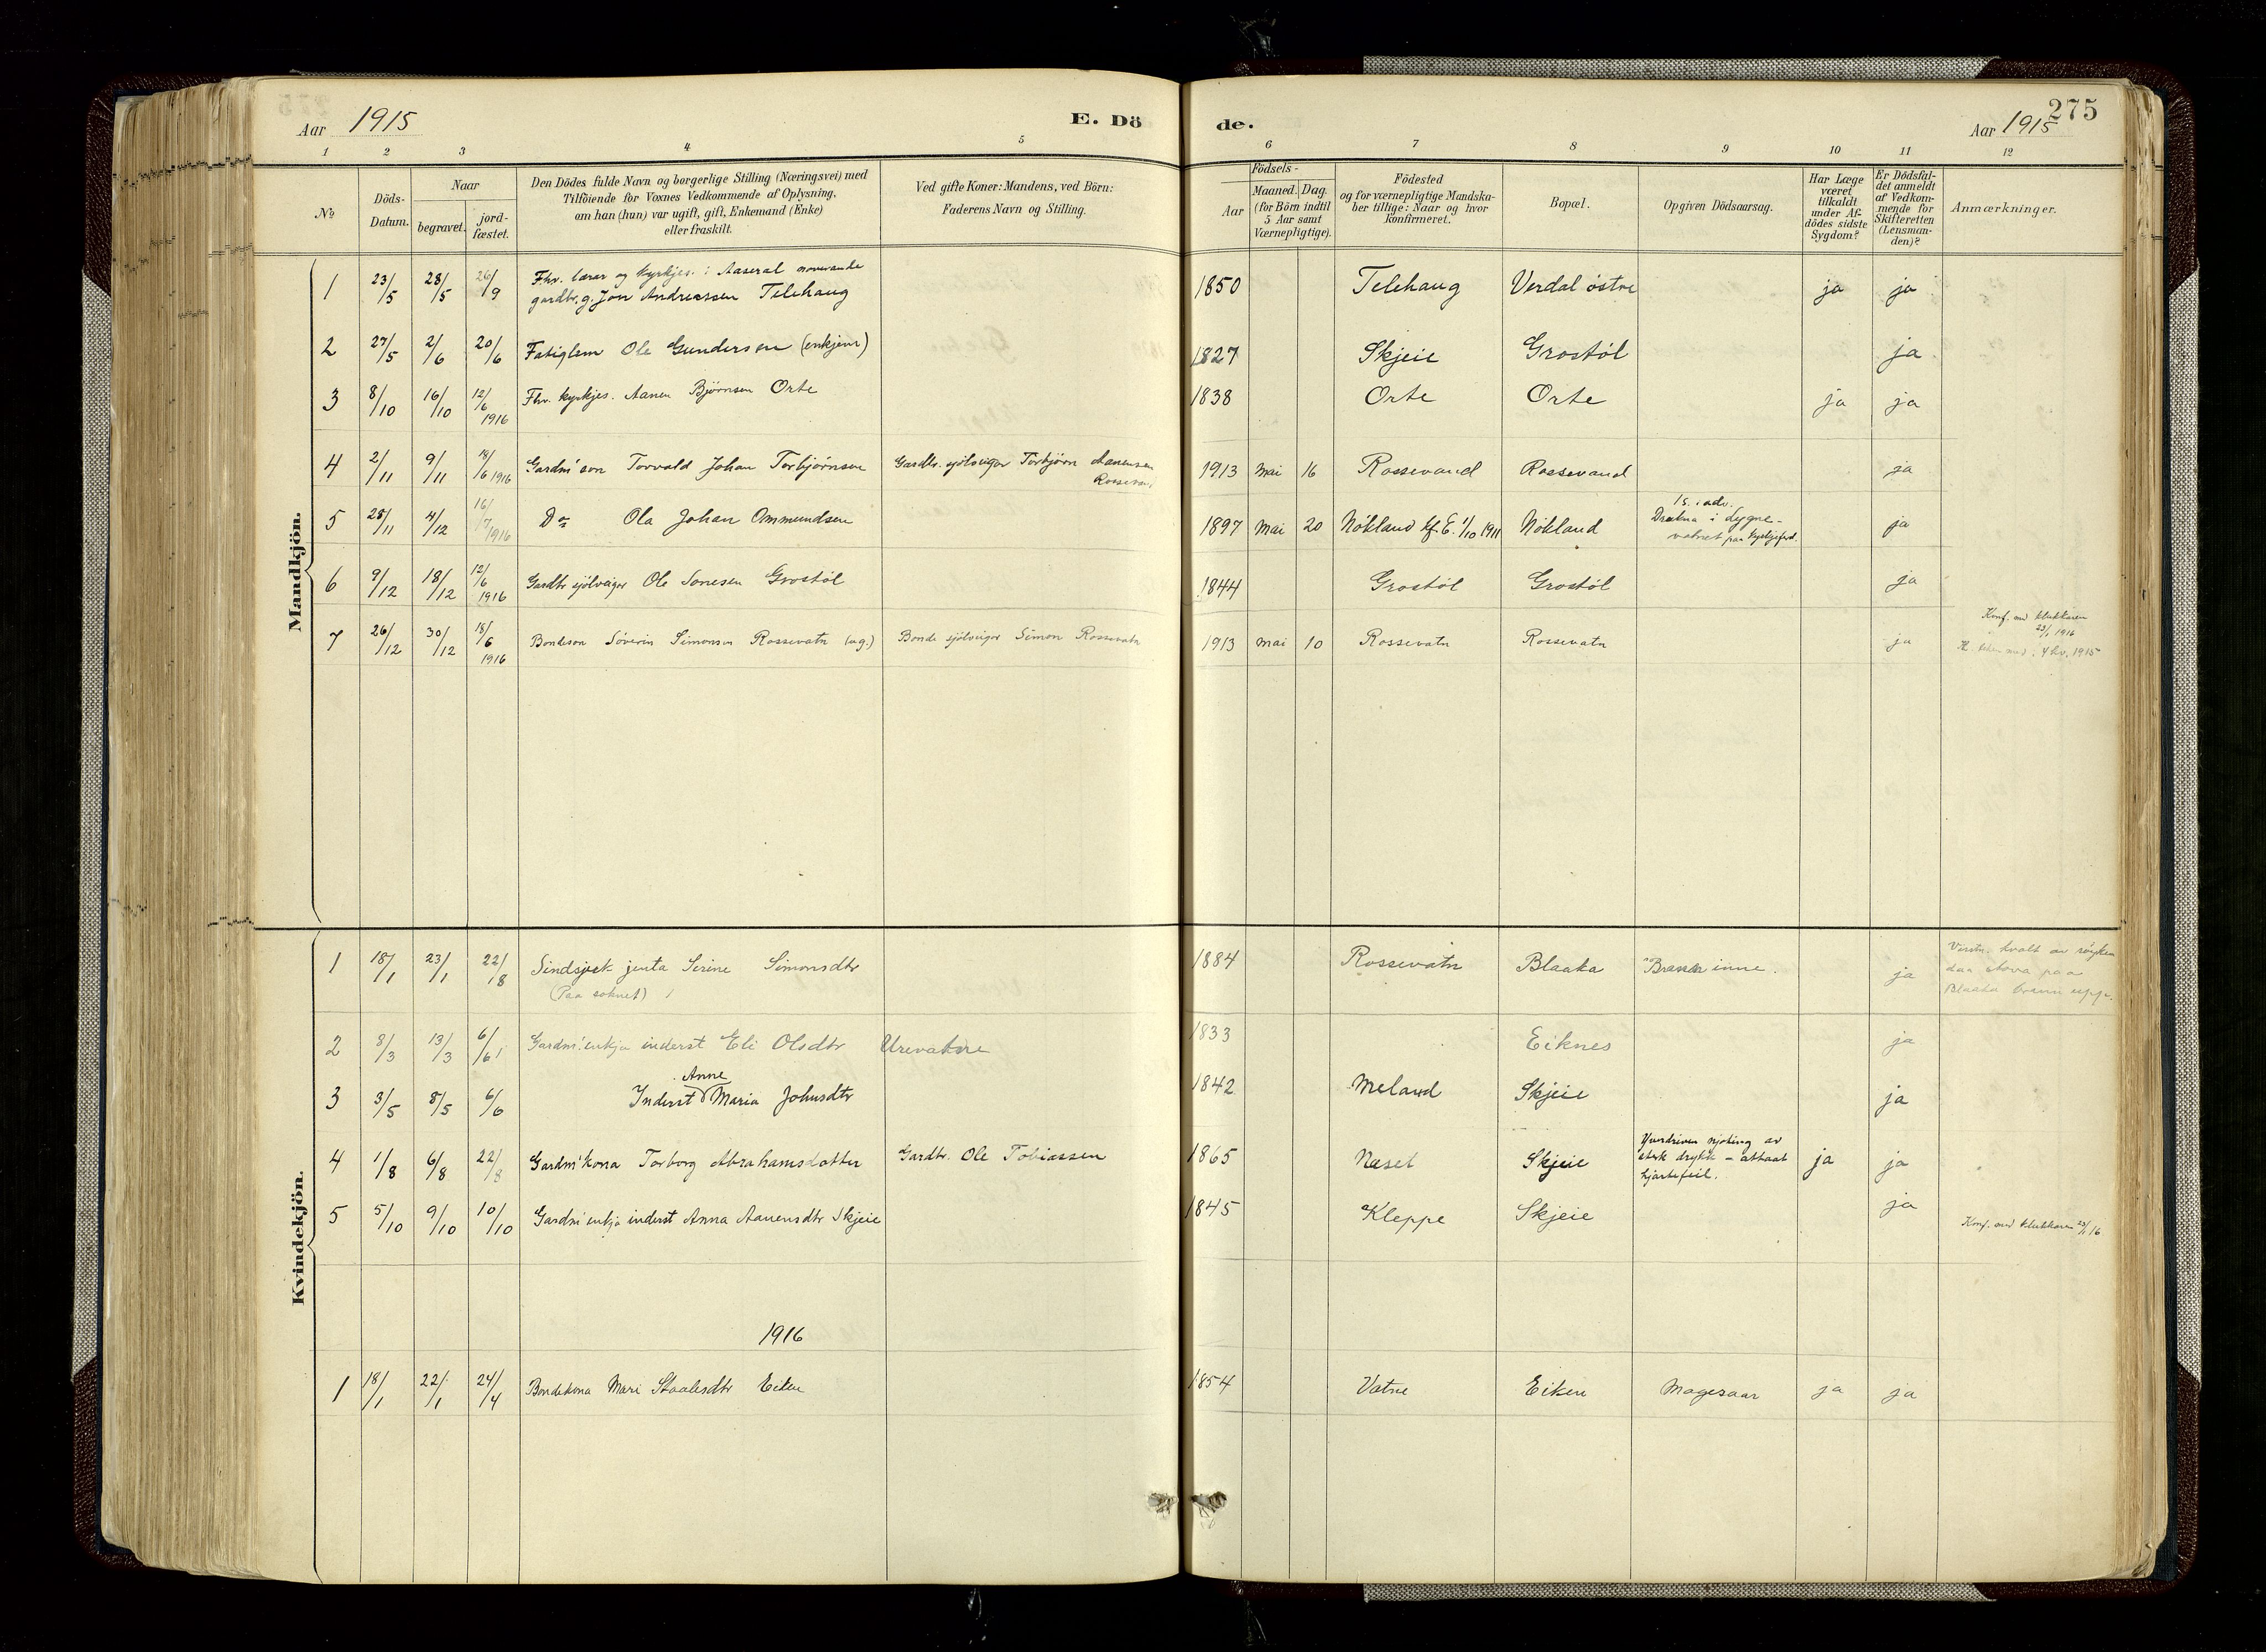 275
Aar 1915 E. Dö de. Aar 1915
1 2 3 4 5 6 7 8 9 10 11 12
No
Döds-
Datum.
Naar
begravet.
jord-
fæstet.
Den Dödes fulde Navn og borgerlige Stilling (Næringsvei) med
Tilföiende for Voxnes Vedkommende af Oplysning,
om han (hun) var ugift, gift, Enkemand (Enke)
eller fraskilt.
Ved gifte Koner: Mandens, ved Börn:
Faderens Navn og Stilling.
Födsels-
Aar
Maaned. Dag.
(for Börn indtil
5 Aar samt
Værnepligtige).
Födested
og for værnepligtige Mandska-
ber tillige: Naar og hvor
konfirmeret.
Bopæl.
Opgiven Dödsaarsag.
Har Læge
været
tilkaldt
under Af-
dödes sidste
Sygdom?
Er Dödsfal-
det anmeldt
af Vedkom-
mende for
Skifteretten
(Lensman-
den)?
Anmærkninger.
Mandkjön.
1 23/5 28/5 26/9 Fhv. lærar og kyrkjes. i Aaseral noverande
gardbr. g. Jon Andreassen Telehaug 1850 Telehaug Verdal östre ja ja
2 27/5 2/6 20/6 Fatiglem Ole Gundersen (enkjem) 1827 Skjeie Grostøl ja
3 8/10 16/10 12/6 1916 Fhv. kyrkjes. Aanen Bjørnsen Orte 1838 Orte Orte ja ja
4 2/11 9/11 18/6 1916 Gardm' son Torvald Johan Torbjørnsen Gardbr. sjölveigar Torbjørn Aanensen
Rossevan 1913 Mai 16 Rossevand Rossevand ja
5 28/11 4/12 16/7 1916 Do Ola Johan Ommundsen 1897 Mai 20 Nökland kf. E. 1/10 1911 Nökland 1 s. i adv.
Drukna i Lygne-
vatnet paa kyrkjeferd. ja
6 9/12 18/12 12/6 1916 Gardbr. sjölveigar Ole Sonesen Grostøl 1844 Grostøl Grostøl ja
7 26/12 30/12 18/6 1916 Bondeson Söverin Simonsen Rossevatn (ug.) Bonde sjölveigar Simon Rossevatn 1913 Mai 10 Rossevatn Rossevatn ja Konf. med klukkaren
23/1 1916
4 kv. 1915
Kvindekjön.
1 18/1 23/1 22/8 Sindsjuk jenta Serine Simonsdtr
(Paa soknet) 1884 Rossevatn Blaaka "Brann inne. ja kvalt av röyken
daa stova paa
Blaaka brann upp.
2 8/3 13/3 6/6 Gardm. enkja inderst Eli Olsdtr Urevatne 1833 Eiknes ja
3 3/5 8/5 6/6 Inderst Anne Maria Johnsdtr 1842 Meland Skjeie ja
4 1/8 6/8 22/8 Gardm' kona Torborg Abrahamsdatter Gardbr. Ole Tobiassen 1865 Næset Skjeie Yverdriven njoting av
sterk drykk – attaat
hjartefeil. ja ja
5 5/10 9/10 10/10 Gardm' enkja inderst Anna Aanensdtr Skjeie 1845 Kleppe Skjeie ja Konf. med klukkaren 23/1 16
1916
1 18/1 22/1 24/4 Bondekona Mari Staalesdtr Eiken 1854 Vatne Eiken Magesaar ja ja